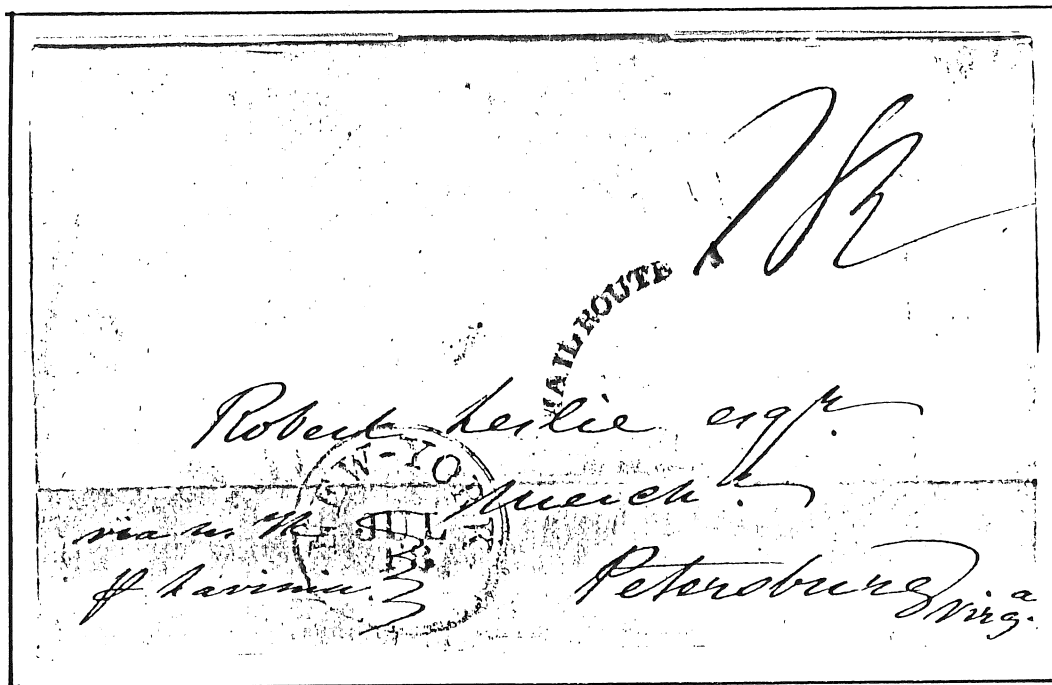 MAIL ROUTE
Robert Leslie esqr.
Mercht.
NEW-YORK
JUL
via N. Yk
Lavinia.
Petersburg
Virga.